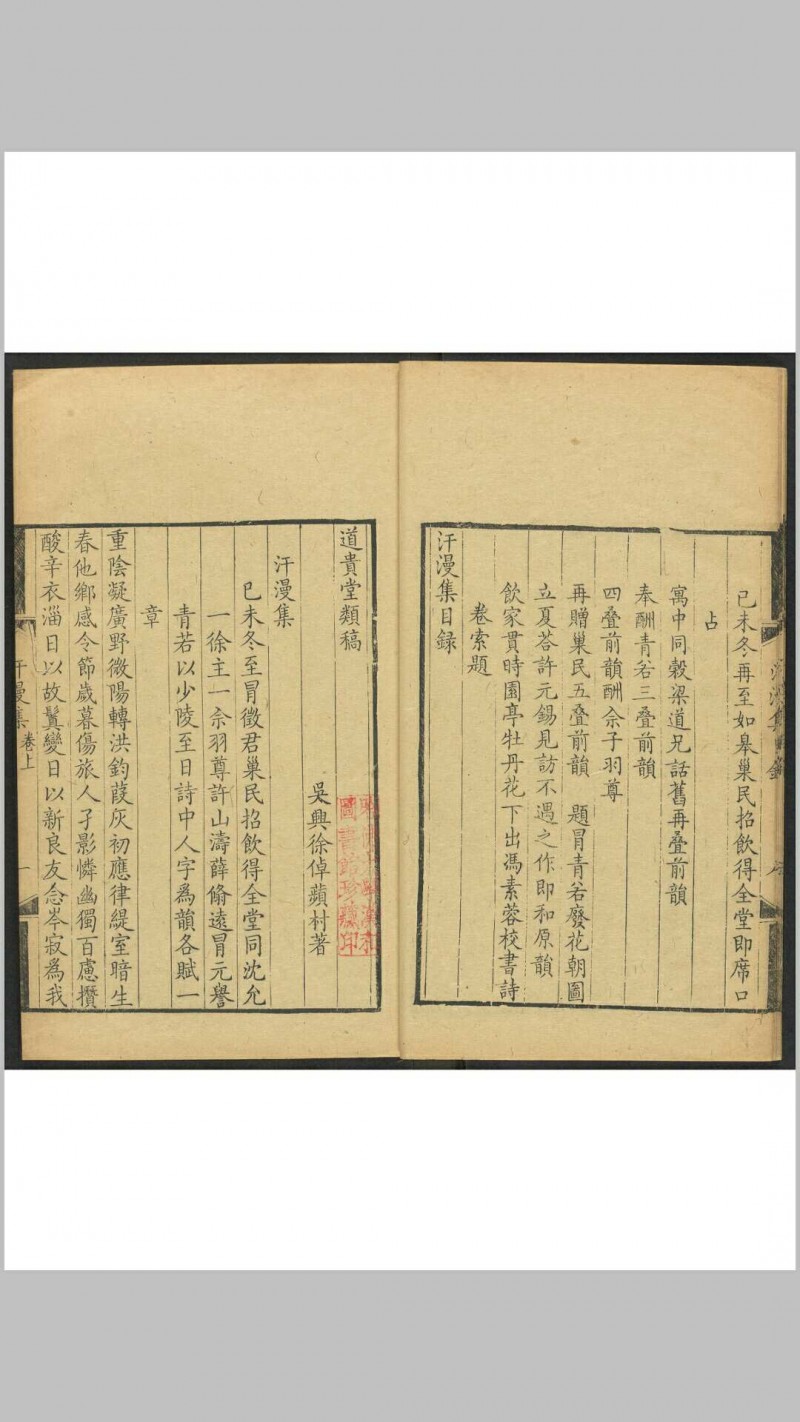 己未冬再至如皋巢民招飲得全堂即席口
占
寓中同穀梁道兄話舊再叠前韻
奉酬青若三叠前韻
四叠前韻酬佘子羽尊
再贈巢民五叠前韻 題冒青若廢花朝圖
立夏荅許元錫見訪不遇之作即和原韻
飲家貫時園亭牡丹花下出馮素蓉校書詩
卷索題
汗漫集目録
道貴堂類稿
吳興徐倬蘋村著
汗漫集
己未冬至冒徵君巢民招飲得全堂同沈允
一徐主一佘羽尊許山濤薛脩遠冒元譽
青若以少陵至日詩中人字為韻各賦一
章
重陰凝廣野微陽轉洪鈞葭灰初應律緹室暗生
春他鄉感令節歲暮傷旅人孑影憐幽獨百慮攢
酸辛衣淄日以故鬒變日以新良友念岑寂為我
汗漫集 卷上 一